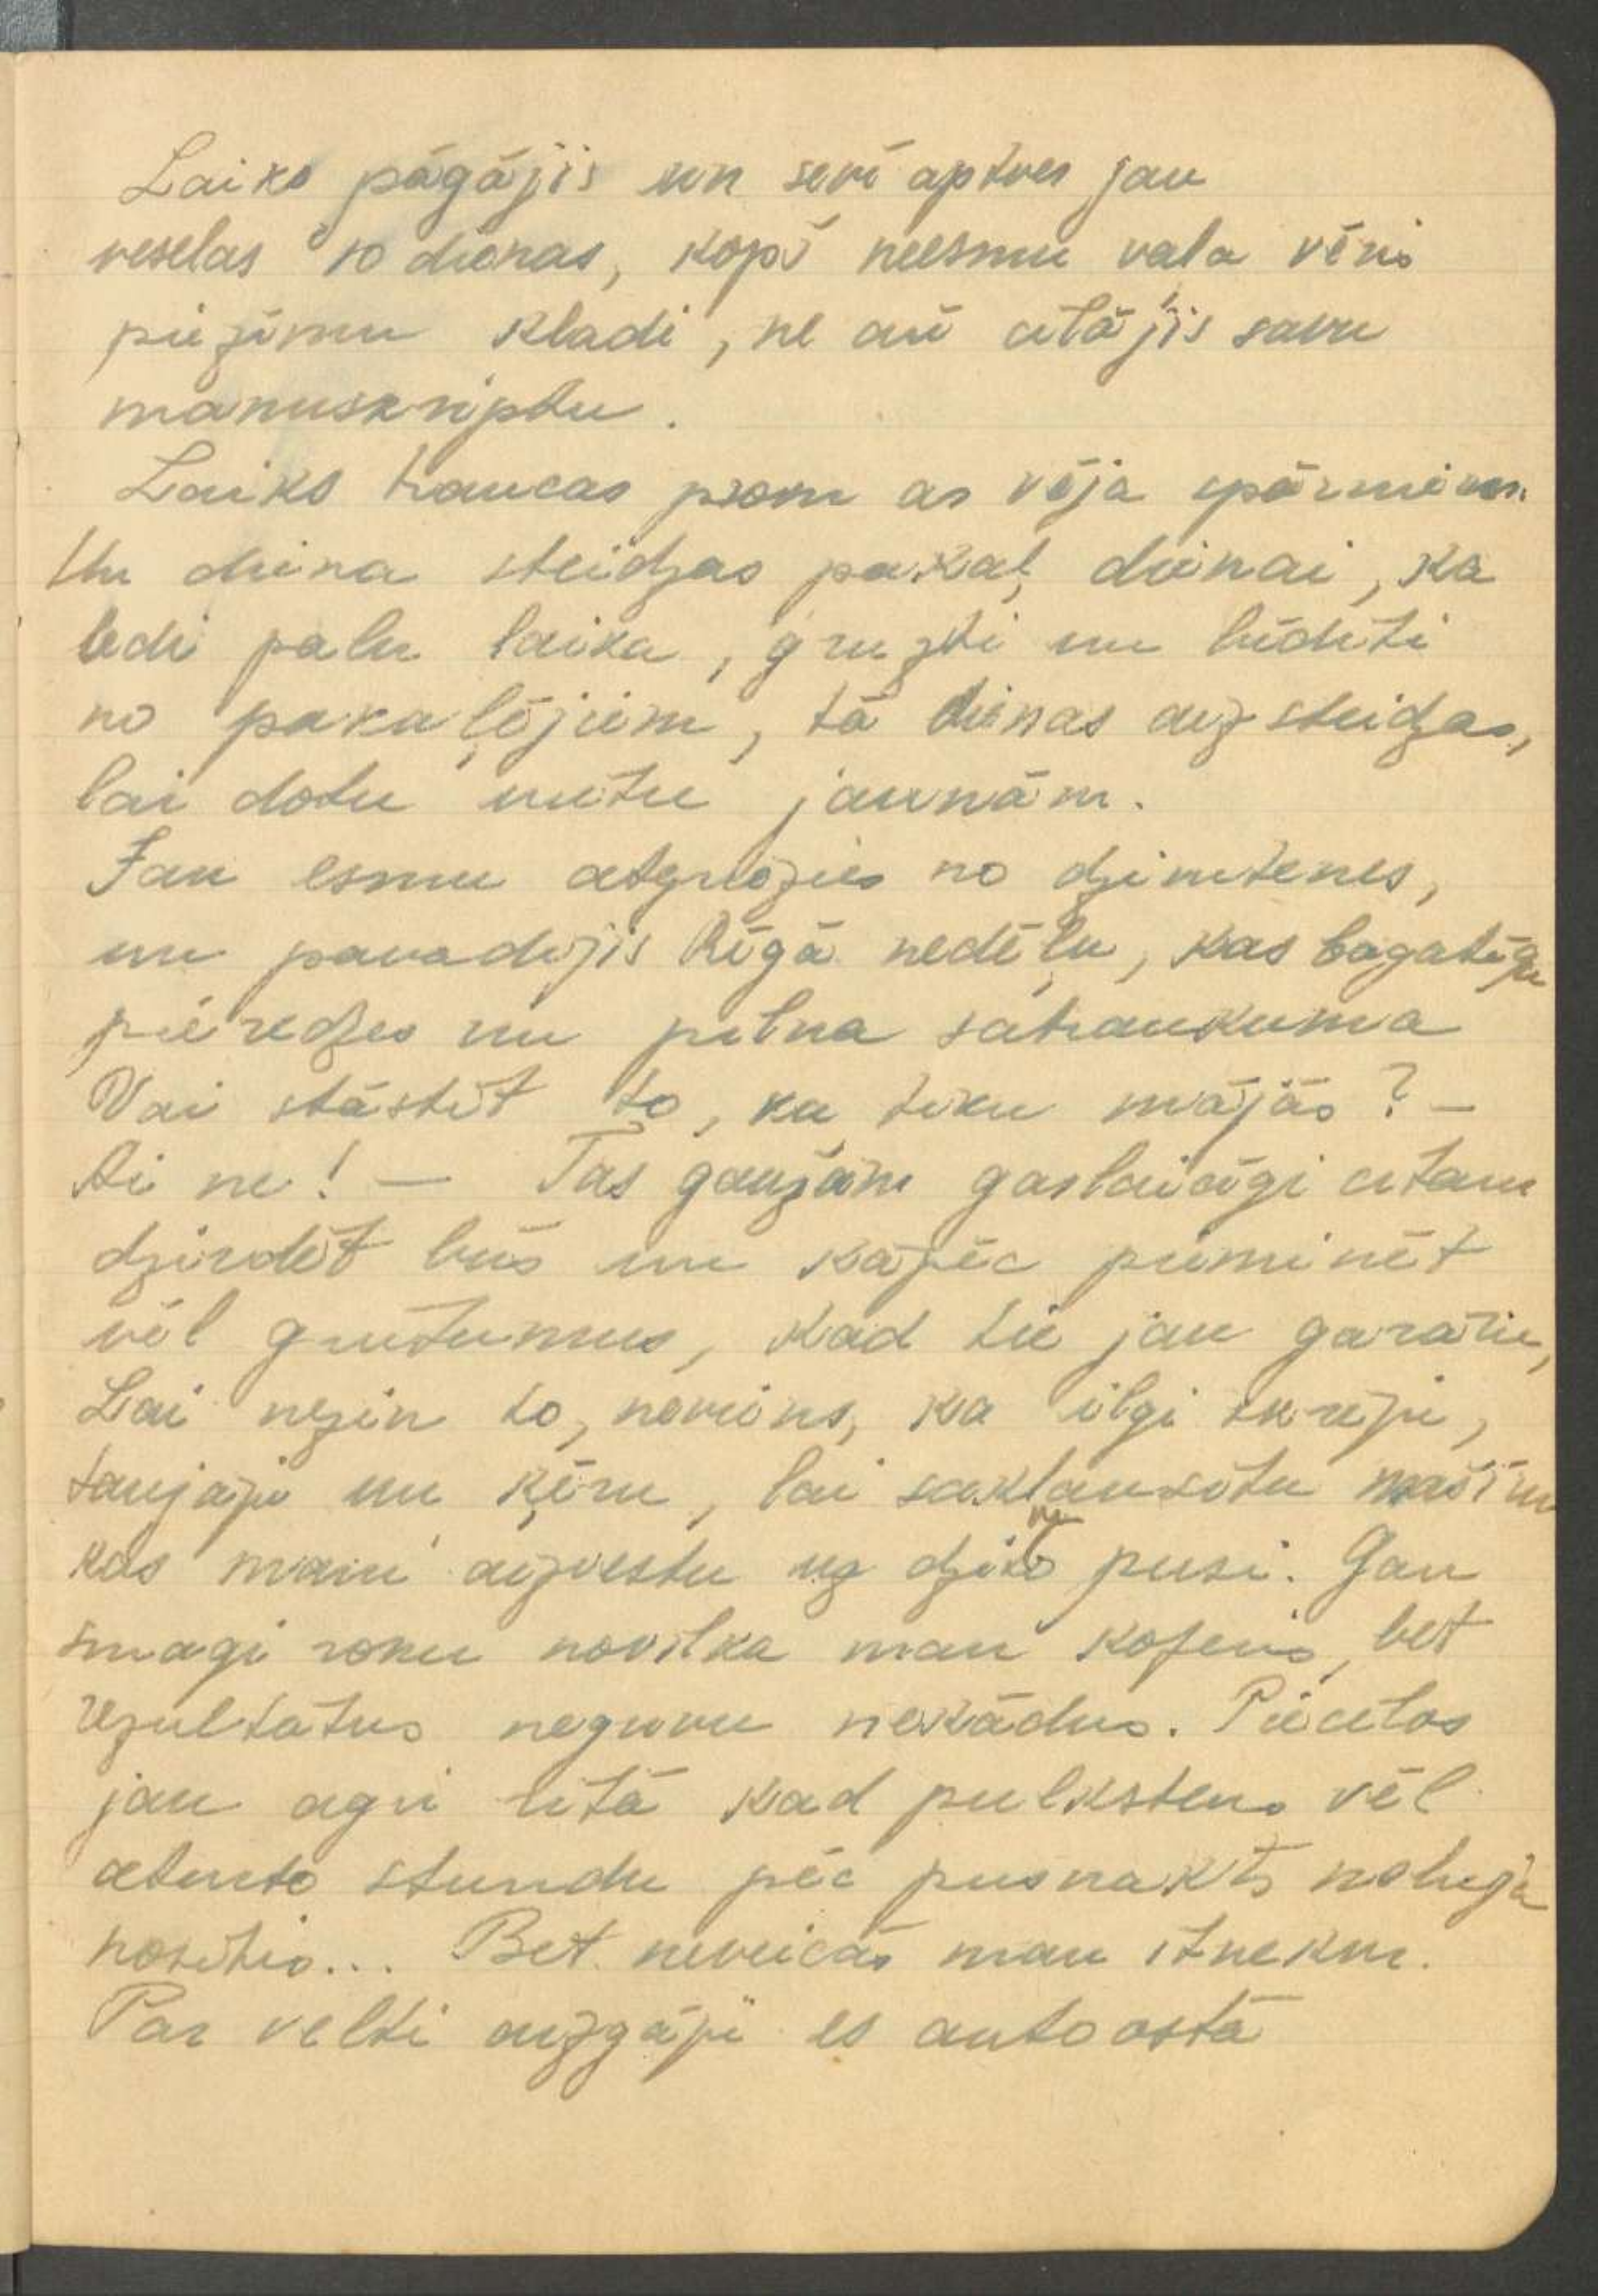 Laiks pagājis un sevī aptver jau
veselas 10 dienas, kopš neesmu vaļa vēris
piezīmu kladi, ne arī cilājis savu
manuskriptu.
Laiks traucas prom ar vēja spārniem.
Un diena steidzas pakaļ dienai, kā
ledi palu laika, gruzti un bīdīti
no pakaļējiem, tā dienas aizsteidzas,
lai dotu vietu jaunām.
Jau esmu atgriezies no dzimtenes,
un pavadijis Rīgā nedēļu, kas bagatīga
pieredzes un pilna satraukuma
Vai stāstīt to, ka tiku mājās? –
Ai ne! – Tas gaužām garlaicīgi citam
dzirdēt būs un kāpēc pieminēt
vēl grūtumus, kad tie jau garām,
Lai nezin to, neviens, ka ilgi skrēju,
taujāju un ķēru, lai saklausītu mašīnu
kas mani aizvestu uz dzimto pusi. Gan
smagi roku novilka man koferis, bet
rezultātus neguvu nekādus. Piecēlos
jau agri rītā kad pulkstens vēl
ceturto stundu pēc pusnakts nebeja
nositis... Bet neveicās man it nekur.
Par velti aizgāju es autoostā